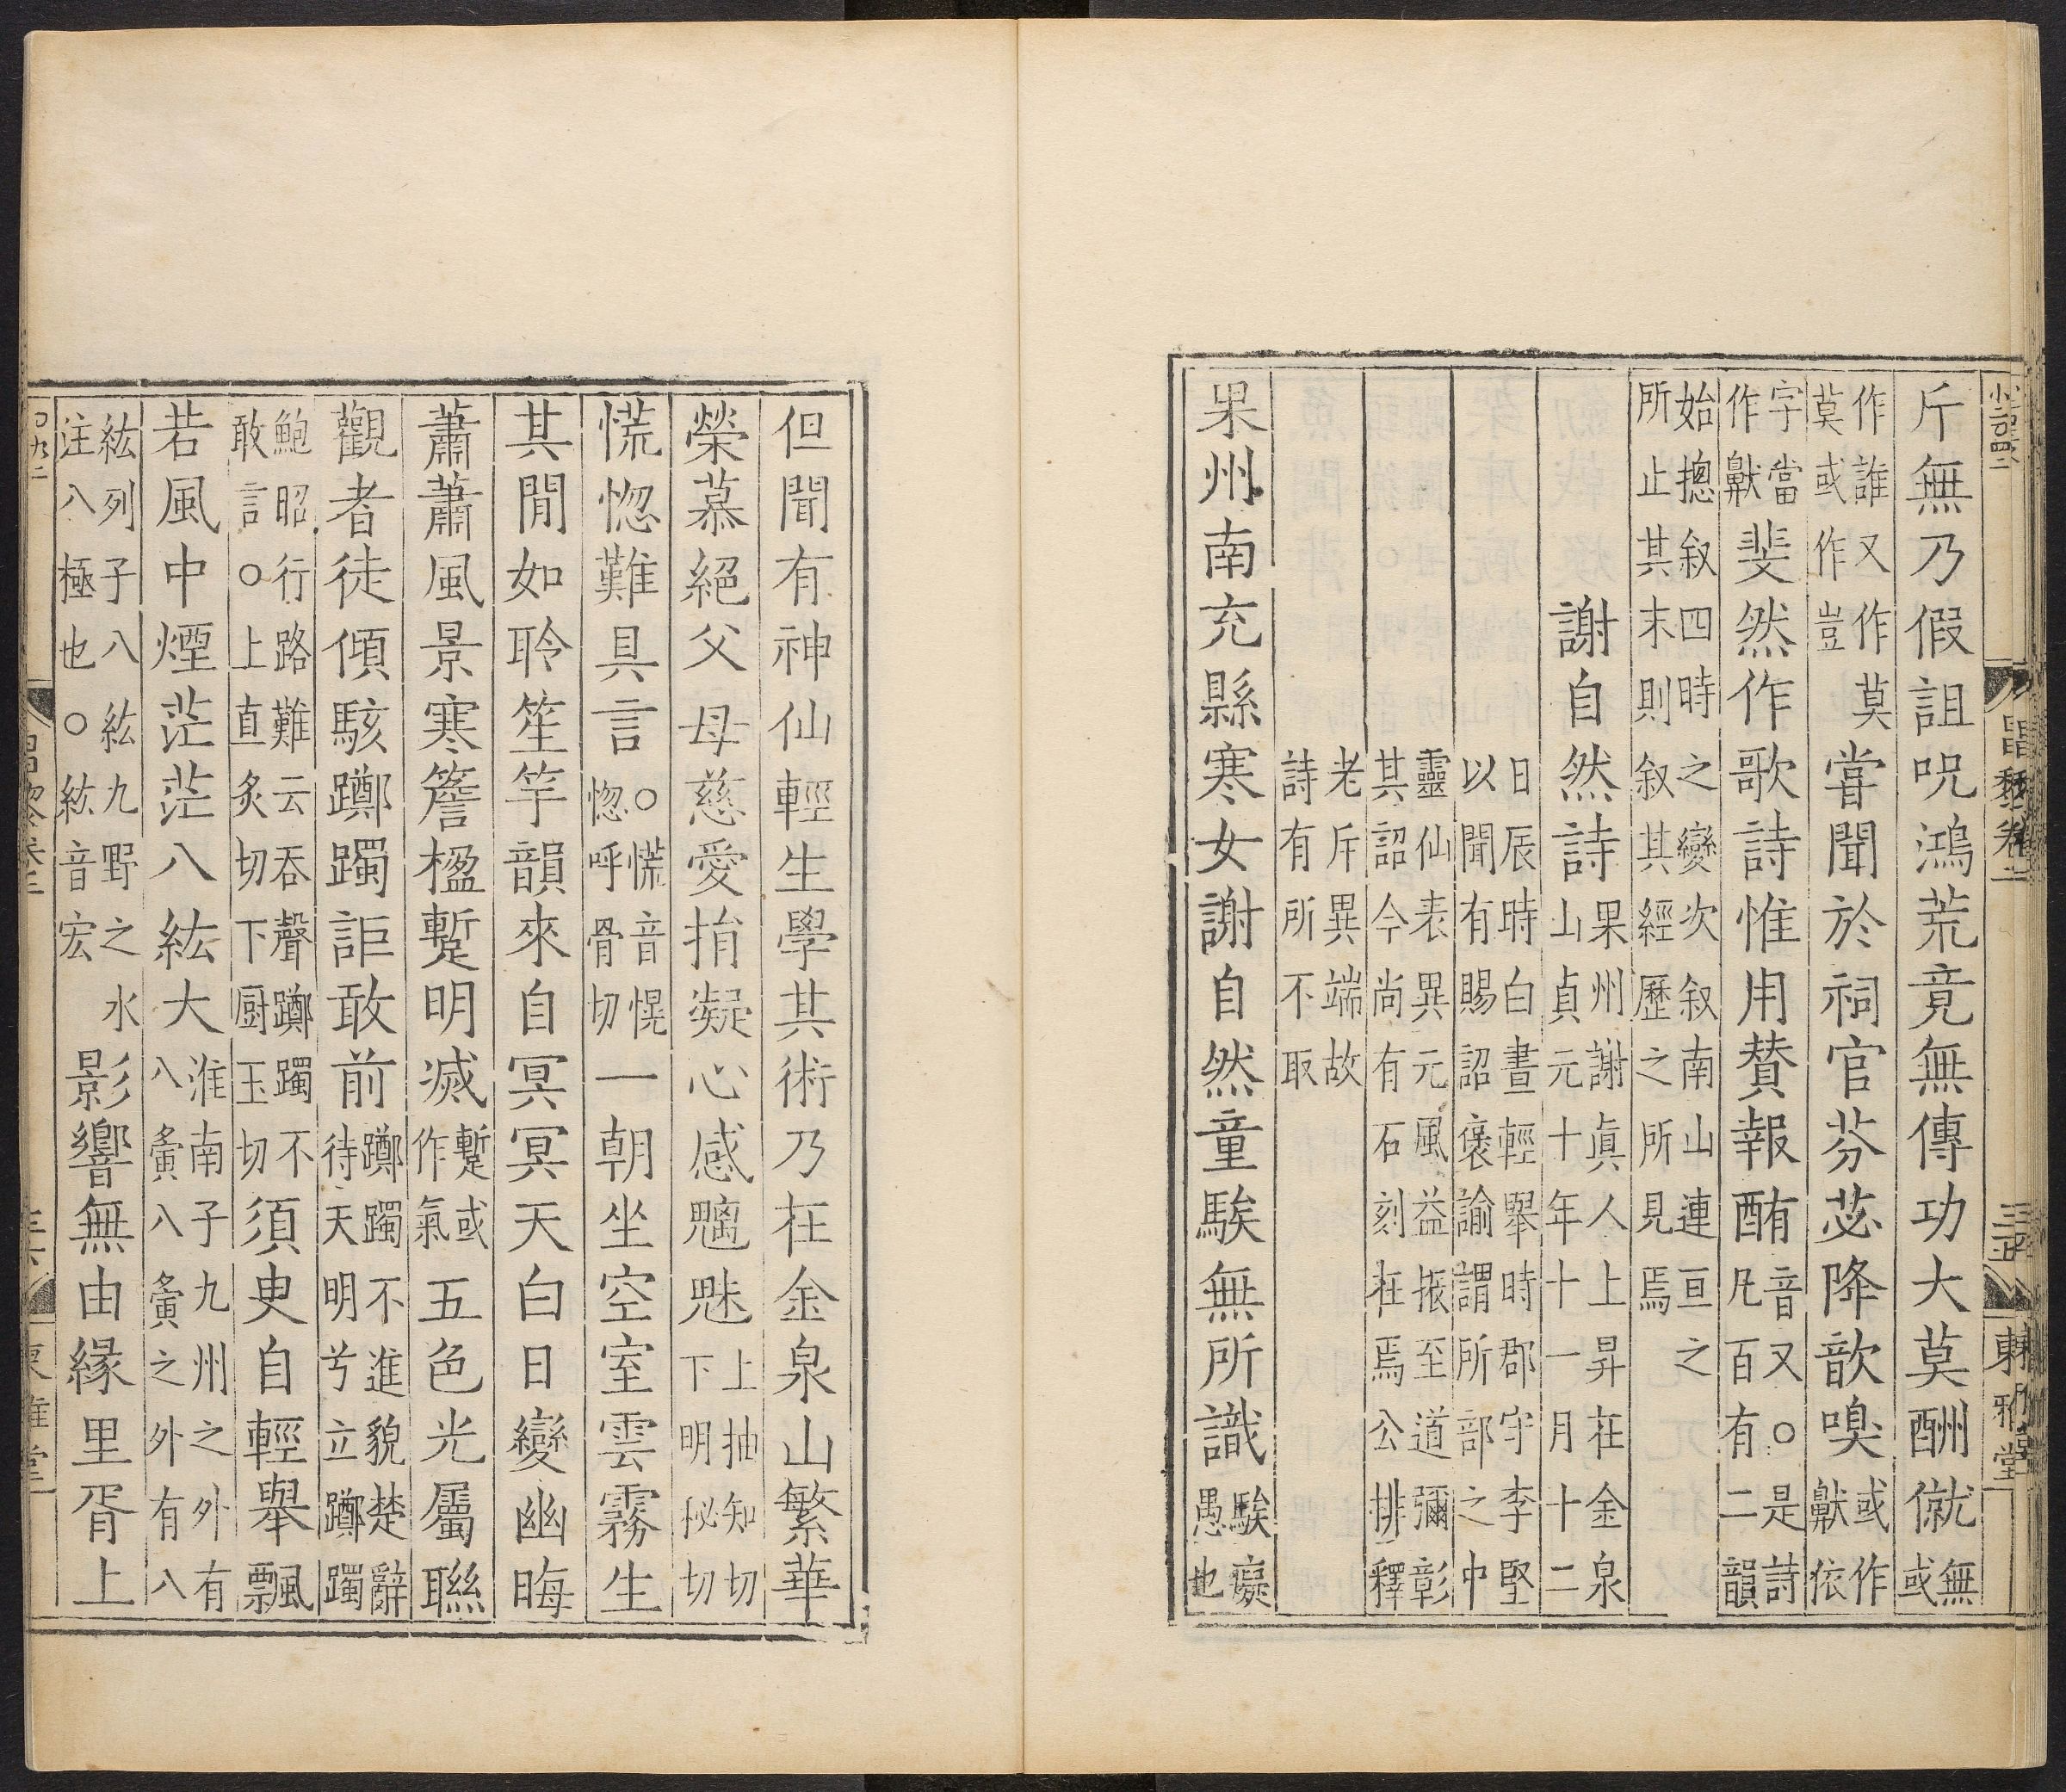 斤無乃假詛呪鴻荒竟無傳功大莫酬僦無或
作誰又作莫莫或作豈嘗聞於祠官芬苾降歆嗅或作獻依
字當作獻斐然作歌詩惟用賛報酭音又○是詩凡百有二韻
始摠叙四時之變次叙南山連亘之所止其末則叙其經歷之所見焉
謝自然詩果州謝真人上昇在金泉山貞元十年十一月十二
日辰時白晝輕舉時郡守李堅以聞有賜詔褒諭謂所部之中
靈仙表異元風益振至道彌彰其詔今尚有石刻在焉公排釋
老斥異端故詩有所不取
果州南充縣寒女謝自然童騃無所識騃癡愚也
昌黎卷一
東雅堂
但聞有神仙輕生學其術乃在金泉山繁華
榮慕絕父母慈愛捐凝心感魑魅上抽知切下明秘切
慌惚難具言○慌音愰惚呼骨切一朝坐空室雲霧生
其閒如聆笙竽韻來自冥冥天白日變幽晦
蕭蕭風景寒簷楹蹔明滅蹔或作氣五色光屬聯
觀者徒傾駭躑躅詎敢前躑躅不進貌楚辭待天明兮立躑躅
鮑昭行路難云吞聲躑躅不敢言○上直炙切下厨玉切須臾自輕舉飄
若風中煙茫茫八紘大淮南子九州之外有八夤八夤之外有八
紘列子八紘九野之水注八極也○紘音宏影響無由緣里胥上
東雅堂